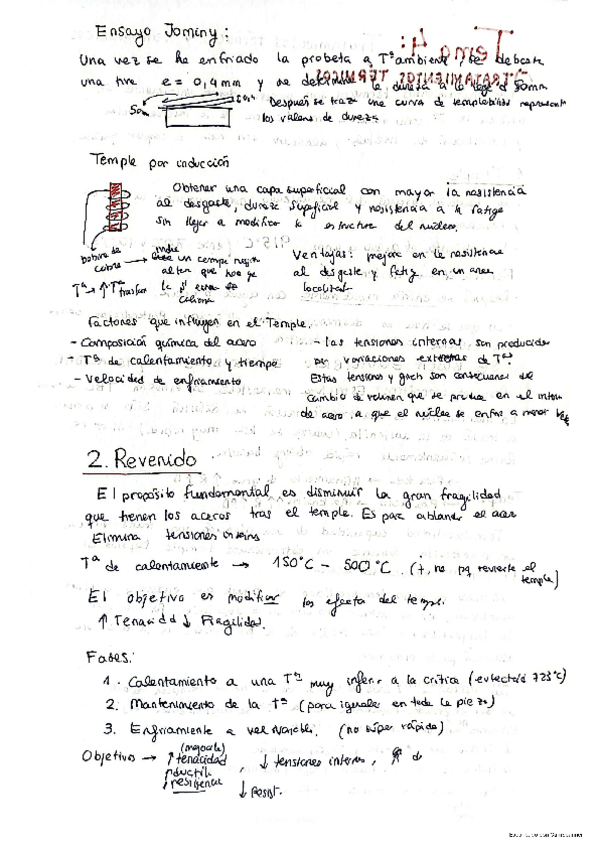 Ensayo Jominy:
Una vez se ha enfriado la probeta a Tª ambiente, se debasta
una tira e = 0,4mm y se determina la dureza a lo largo de 50mm
Después se traza una curva de templabilidad representa
los valores de dureza
Temple por inducción
Obtener una capa superficial con mayor la resistencia
al desgaste, dureza superficial y resistencia a la fatiga
sin llegar a modificar la estructura del núcleo.
bobina de
cobre
Tª → ↑Tª
Ventajas: mejora en la resistencia
al desgaste y fatiga en un area
localizada
Factores que influyen en el Temple.
- Composición química del acero
- Tª de calentamiento y tiempo
- Velocidad de enfriamiento
- las tensiones internas son producidas
por variaciones extremas de Tª.
Estas tensiones y son consecuencia del
cambio de volumen que se produce en el
de acero a que el núcleo se enfria a menor
2. Revenido
El propósito fundamental es disminuir la gran fragilidad
que tienen los aceros tras el temple. Es para ablandar el acero
Elimina tensiones internas
Tª de calentamiento → 150°C - 500°C. (, no pq revierte el
temple)
El objetivo es modificar los efecto del temple.
↑ Tenacidad ↓ Fragilidad.
Fases:
1. Calentamiento a una Tª muy inferior a la crítica (eutectoide 723°C)
2. Mantenimiento de la Tª (para igualar en toda la pieza)
3. Enfriamiento a vel variable. (no súper rápido)
Objetivos → (mejorarla)
↑ tenacidad
↑ ductili
↑ resiliencia
, ↓ tensiones internas, ↑ d
↓ Resist.